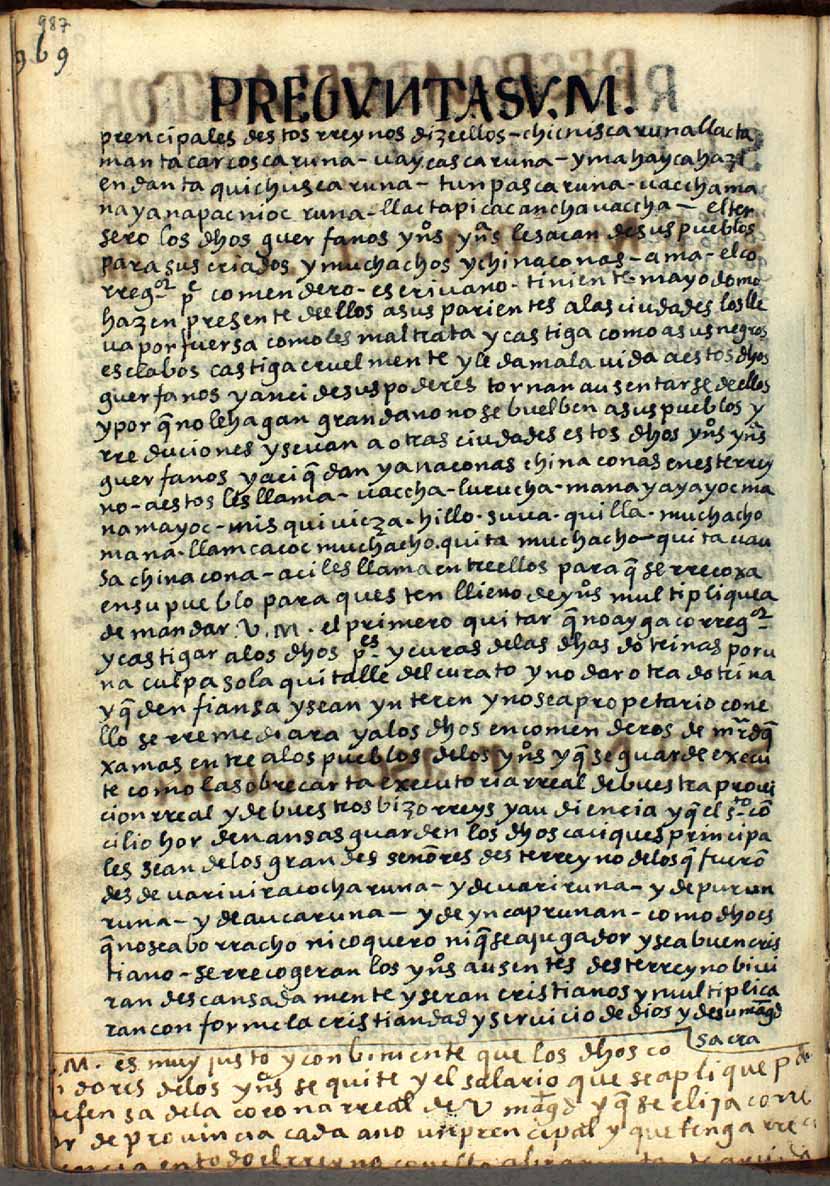 987
969
PREGVNTA SV. M.
prencipales destos rreynos dizeellos - chicnisca runa llacta
manta carcosca runa - uaycasca runa - yma hayca hazi
endanta quichusca runa - tunpasca runa - uacchama
nayanapacnioc runa - llactapi cacancha uaccha - el ter
sero los dhos guerfanos yns. yns. le sacan de sus pueblos
para sus criados y muchachos y chinaconas - ama - el co
rregor pe comendero - escriuano - tiniente mayodomo
hazen presente deellos a sus parientes a las ciudades los lle
ua por fuersa como les maltrata y castiga como a sus negros
esclabos castiga cruelmente y le da mala uida a estos dhos
guerfanos y anci de sus poderes tornan ausentarse deellos
y por q. no le hagan gran dano no se buelben a sus pueblos y
rreduciones y se uan a otras ciudades estos dhos yns. yns.
guerfanos y aci q. dan yanaconas chinaconas en este rrey
no - a estos les llama - uaccha - lurucha - mana yayayoc ma
na mayoc - misqui uicza - hillo - suua - quilla - muchacho
mana - llamcacoc muchacho - quita muchacho - quita uau
sa chinacona - aci les llama entreellos para q. se rrecoxa
en su pueblo para questen llieno de yns. multiplique a
de mandar. V. M. el primero quitar q. no ayga corregor
y castigar a los dhos pes. y curas de las dhas dotrinas por u
na culpa sola qui talle del curato y no dar otra dotrina
y q. den fiansa y sean ynteren y no sea propetario con e
llo se rremediara y a los dhos encomenderos de mrd q.
xamas entre a los pueblos de los yns. y q. se guarde execu
te como la sobrecarta executoria rreal de buestra proui
cion rreal y de buestros bizorreys y audiencia y q. el sto co
cilio hordenansas guarden los dhos caciques principa
les sean de los grandes senores deste rreyno de los q. fuero
desde uari uiracocha runa - y de uari runa - y de purun
runa - y de auca runa - y de yncap runan - como dho es
q. no sea borracho ni coquero ni q. sea jugador y sea buen cris
tiano - se rrecogeran los yns. ausentes deste rreyno biui
ran descansadamente y seran cristianos y multiplica
ran conforme la cristiandad y seruicio de dios y de su magd
sacra
.M. es muy justo y conbiniente que los dhos co
idores de los yns. se quite y el salario que se aplique pa
defensa de la corona rreal de V magd y q. se elija corre
or de prouincia cada ano un prencipal y que tenga
en todo el rreyno